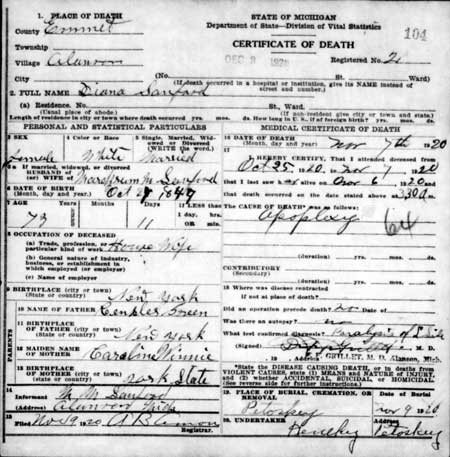 1. PLACE OF DEATH
STATE OF MICHIGAN
Department of State—Division of Vital Statistics
County Emmet
104
Township
CERTIFICATE OF DEATH
Village Alanson
Registered No. 2
DEC 9 1920
City (No. St. Ward)
(If death occurred in a hospital or institution, give its NAME instead of street and number.)
2. FULL NAME Diana Sanford
(a) Residence. No. St., Ward.
(Usual place of abode) (If non-resident give city or town and state.)
Length of residence in city or town where death occurred yrs. mos. ds. How long in U. S., if of foreign birth? yrs. mos. ds.
PERSONAL AND STATISTICAL PARTICULARS
3 SEX 4 Color or Race 5 Single, Married, Widowed or Divorced (WRITE the word)
Female White Married
HUSBAND of (or) WIFE of M. Sanford
6 DATE OF BIRTH (Month, day and year) Oct 1847
7 AGE Years Mos. Days If LESS than 1 day, hrs. min.
73 11
8 OCCUPATION OF DECEASED
(a) Trade, profession, or particular kind of work House Wife
(b) General nature of industry, business, or establishment in which employed (or employer)
(c) Name of employer
9 BIRTHPLACE (city or town) (State or country) New York
10 NAME OF FATHER Green
PARENTS
11 BIRTHPLACE OF FATHER (city or town) (State or country) New York
12 MAIDEN NAME OF MOTHER Caroline Winnie
13 BIRTHPLACE OF MOTHER (city or town) (State or country) York State
14 Informant M. M. Sanford
Alanson Mich
15 Filed Nov 19 1920
Registrar.
MEDICAL CERTIFICATE OF DEATH
16 DATE OF DEATH (Month, day and year) Nov 7th 1920
17 I HEREBY CERTIFY, That I attended deceased from
Oct 25 1920 to Nov 7 1920
that I last saw her alive on Nov 6 1920
and that death occurred on the date stated above at 3300 m.
The CAUSE OF DEATH was as follows:
Apoplexy
64
(duration) yrs. mos. ds.
CONTRIBUTORY (Secondary)
(duration) yrs. mos. ds.
18 Where was disease contracted if not at place of death?
Did an operation precede death? no Date of
Was there an autopsy? no
What test confirmed diagnosis? Paralysis of Side
(Signed) M. D.
19 , Address GRILLET, M. D. Alanson, Mich.
*State the DISEASE CAUSING DEATH, or in deaths from VIOLENT CAUSES, state (1) MEANS and NATURE OF INJURY, and (2) whether ACCIDENTAL, SUICIDAL, or HOMICIDAL. (See reverse side for further instructions.)
19. PLACE OF BURIAL, CREMATION, OR REMOVAL Date of Burial
Petoskey Nov 9 1920
20. UNDERTAKER ADDRESS
Petoskey